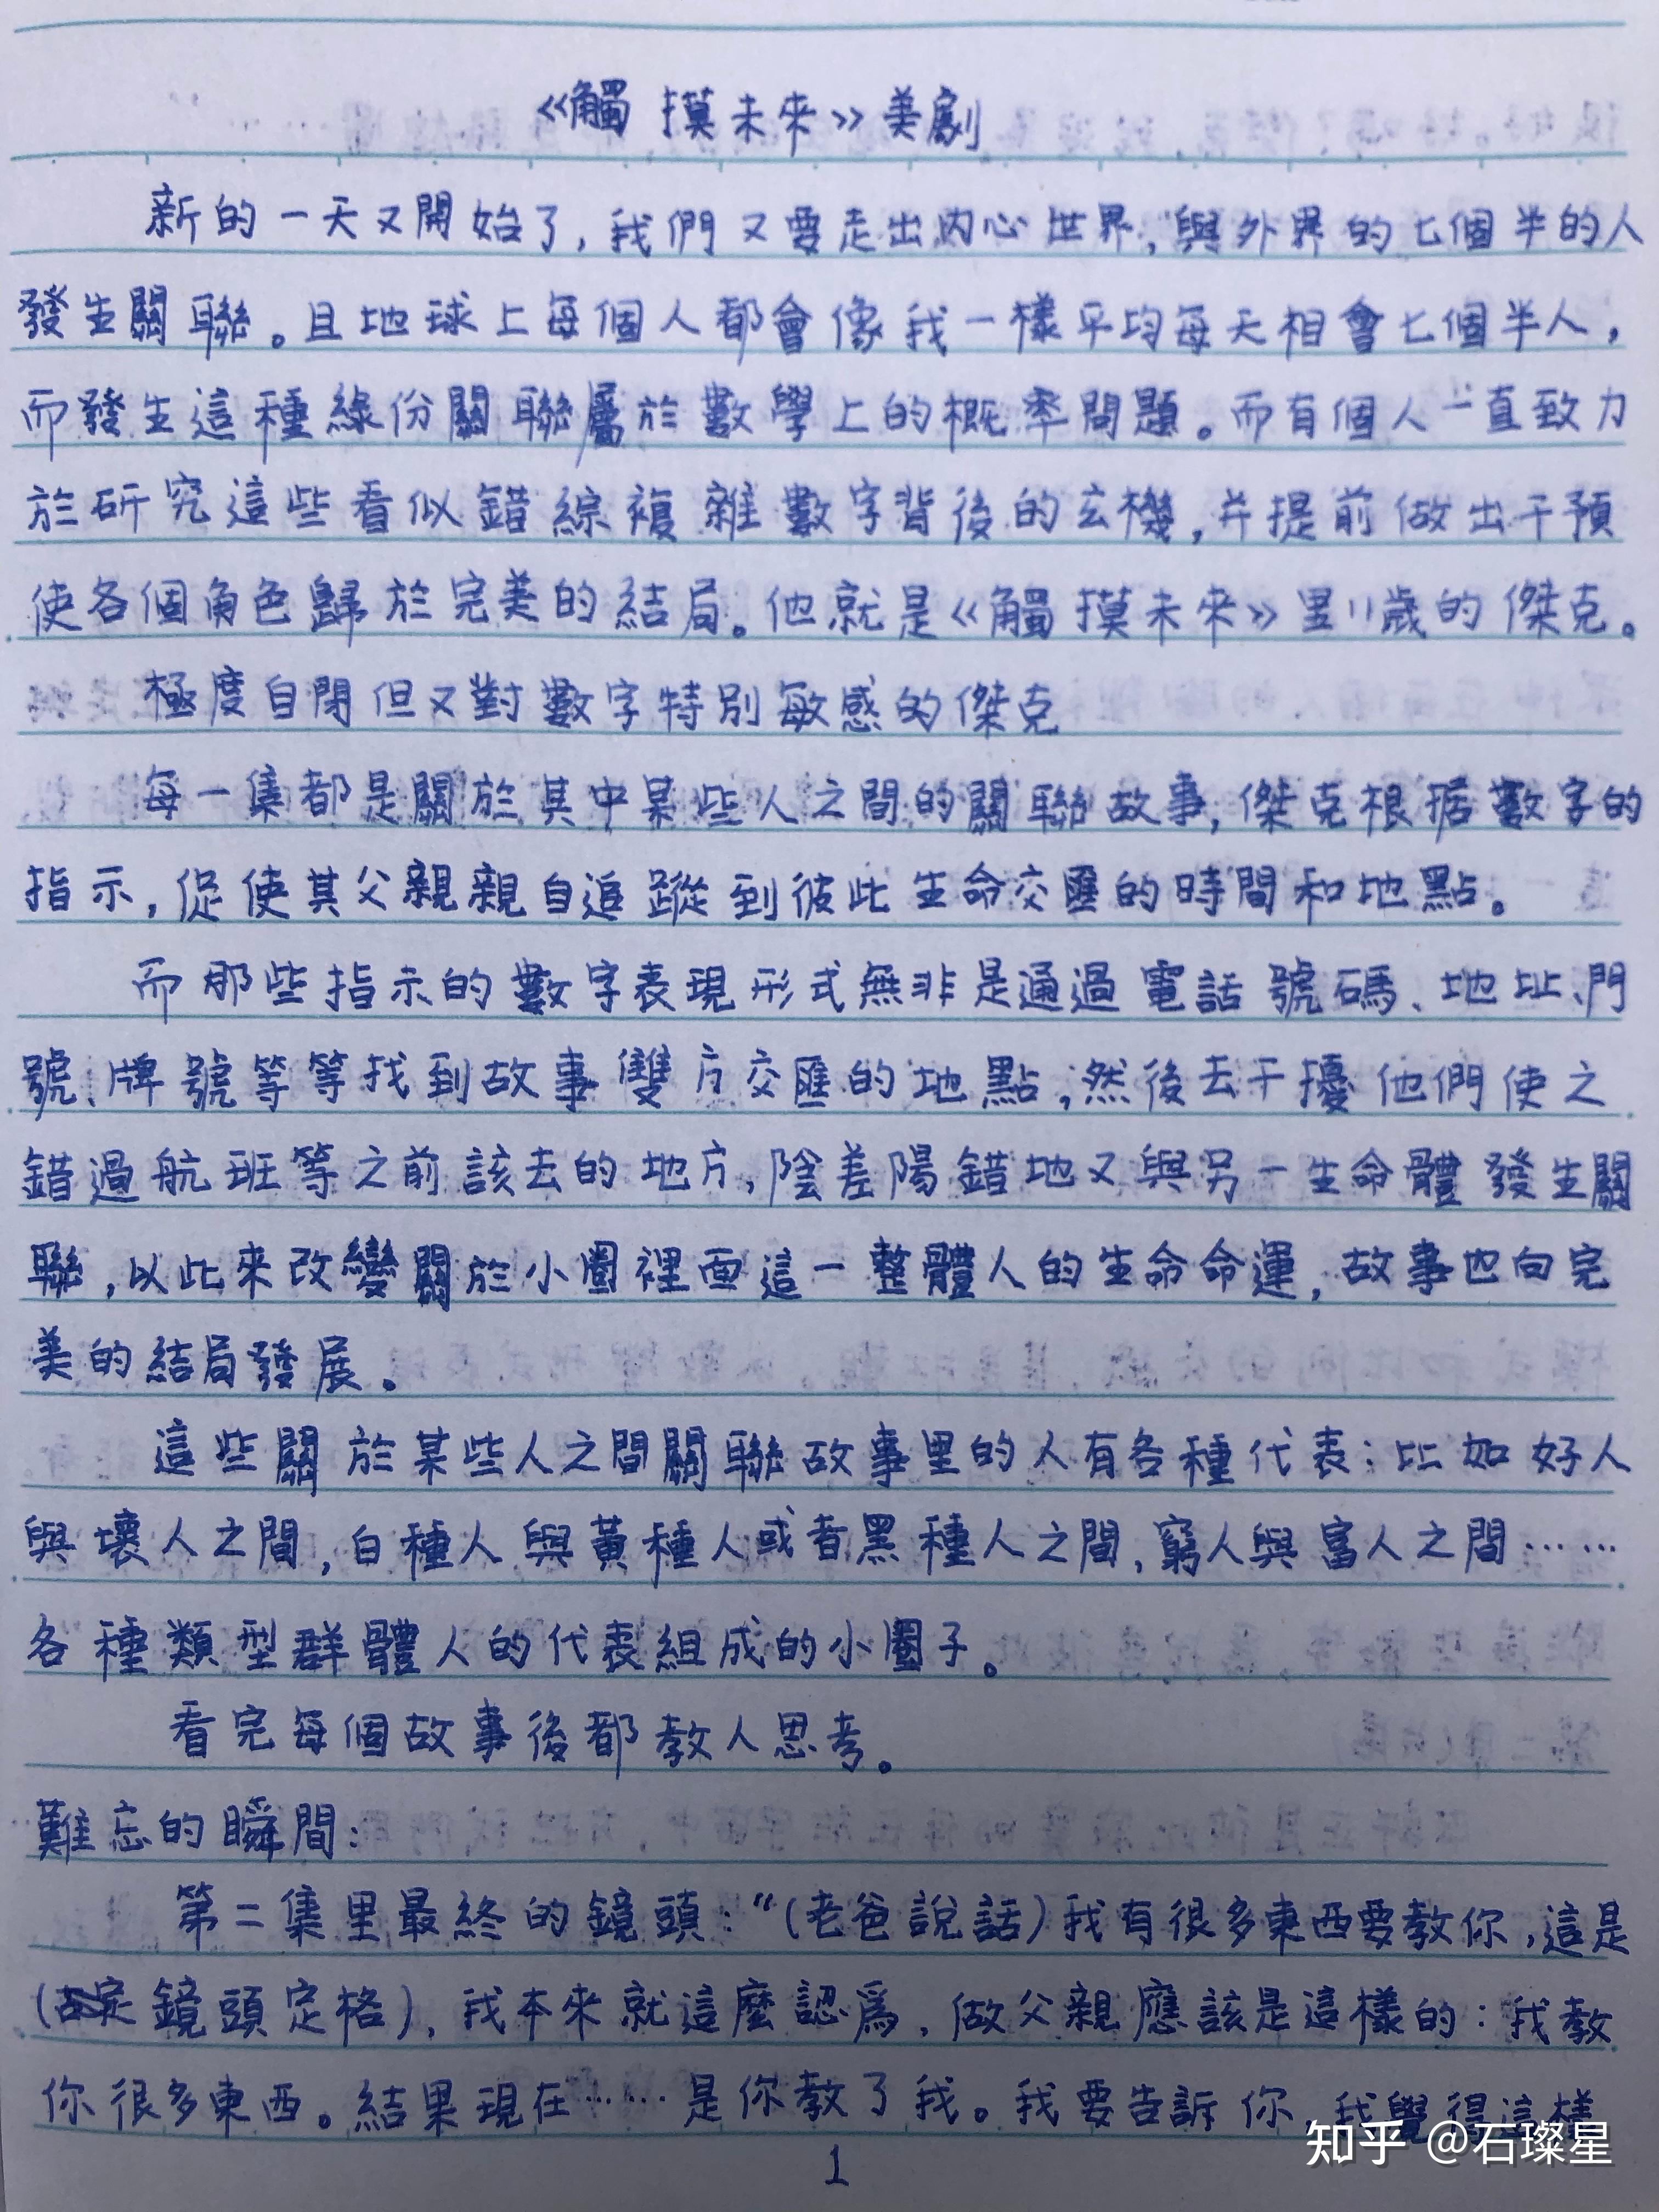 《觸摸未來》美劇
新的一天又開始了,我們又要走出內心世界,與外界的七個半的人
發生關聯。且地球上每個人都會像我一樣平均每天相會七個半人,
而發生這種緣份關聯屬於數學上的概率問題。而有個人一直致力
於研究這些看似錯綜複雜數字背後的玄機,并提前做出干預
使各個角色歸於完美的結局。他就是《觸摸未來》里11歲的傑克。
極度自閉但又對數字特別敏感的傑克
每一集都是關於其中某些人之間的關聯故事,傑克根据數字的
指示,促使其父親親自追蹤到彼此生命交匯的時間和地點。
而那些指示的數字表現形式無非是通過電話號碼、地址、門
號、牌號等等找到故事雙方交匯的地點;然後去干擾他們使之
錯過航班等之前該去的地方,陰差陽錯地又與另一生命體發生關
聯,以此來改變關於小圈裡面這一整體人的生命命運,故事也向完
美的結局發展。
這些關於某些人之間關聯故事里的人有各種代表:比如好人
與壞人之間,白種人與黃種人或者黑種人之間,窮人與富人之間……
各種類型群體人的代表組成的小圈子。
看完每個故事後都教人思考。
難忘的瞬間:
第二集里最終的鏡頭:“(老爸說話)我有很多東西要教你,這是
(鏡頭定格),我本來就這麼認爲,做父親應該是這樣的:我教
你很多東西。結果現在……是你教了我。我要告訴你,我覺得這樣
知乎 @石璨星
1